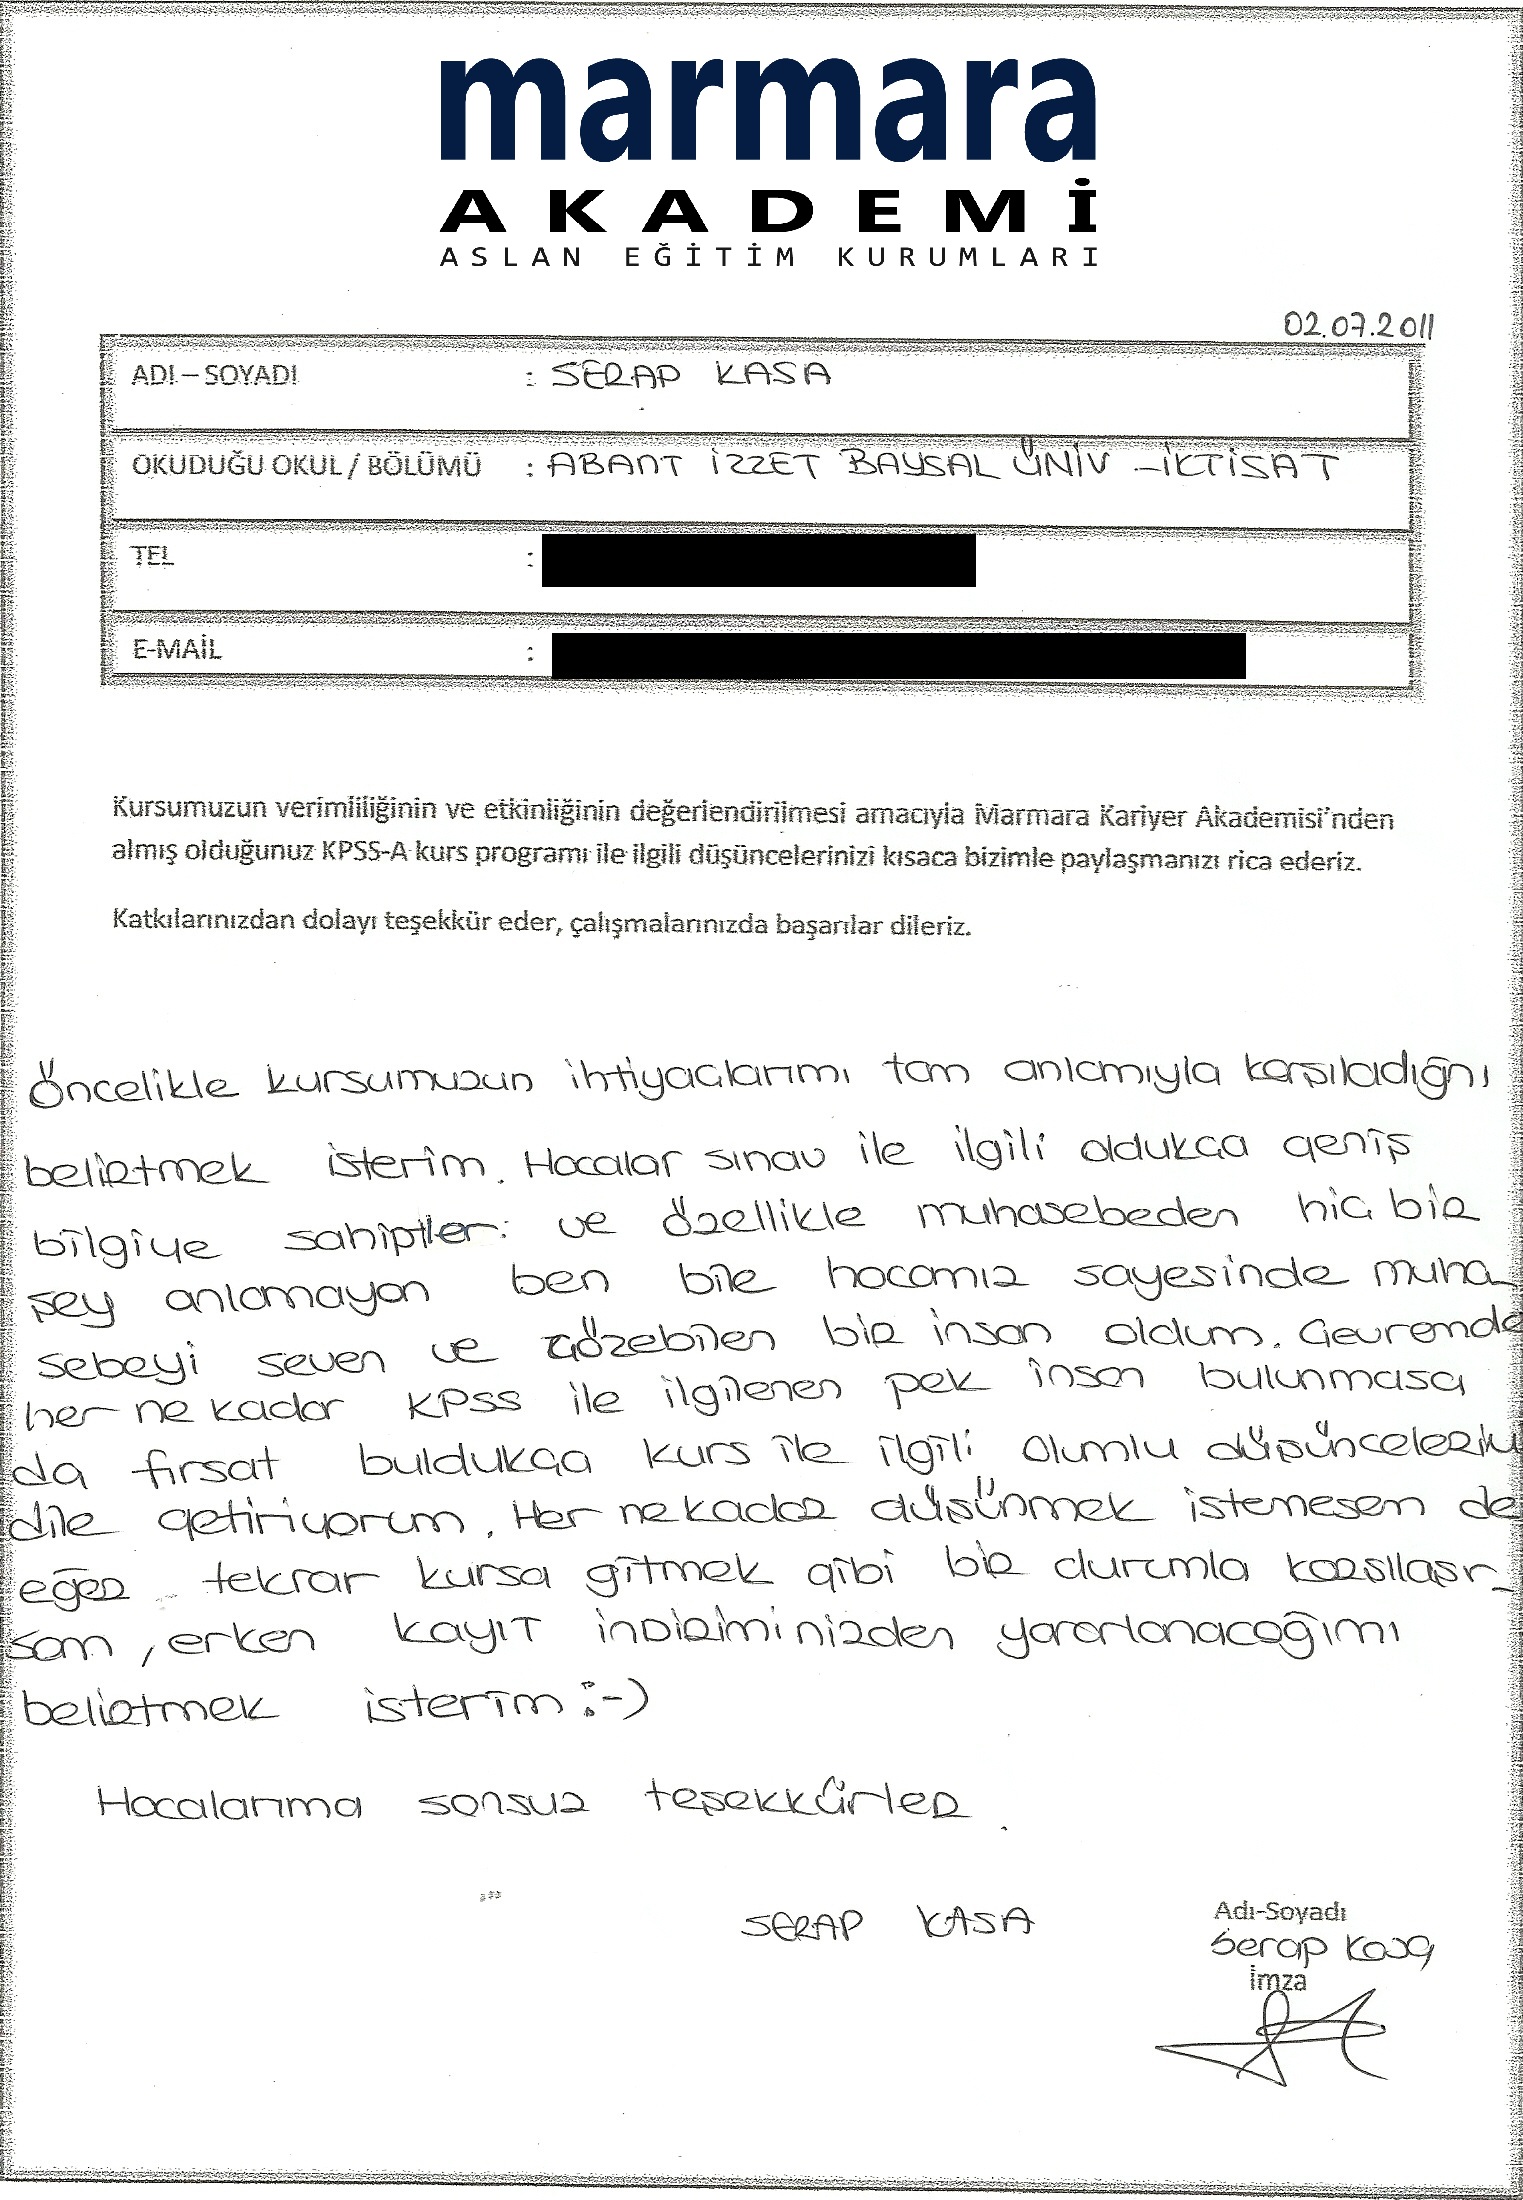 marmara
AKADEMİ
ASLAN EĞİTİM KURUMLARI
02.07.2011
ADI – SOYADI : SERAP KASA
OKUDUĞU OKUL / BÖLÜMÜ : ABANT İZZET BAYSAL ÜNİV - İKTİSAT
TEL :
E-MAİL :
Kursumuzun verimliliğinin ve etkinliğinin değerlendirilmesi amacıyla Marmara Kariyer Akademisi'nden
almış olduğunuz KPSS-A kurs programı ile ilgili düşüncelerinizi kısaca bizimle paylaşmanızı rica ederiz.
Katkılarınızdan dolayı teşekkür eder, çalışmalarınızda başarılar dileriz.
Öncelikle kursumuzun ihtiyaçlarımı tam anlamıyla karşıladığnı
belirtmek isterim. Hocalar sınav ile ilgili oldukça geniş
bilgiye sahiptler. ve özellikle muhasebeden hiç bir
şey anlamayan ben bile hocamız sayesinde muha-
sebeyi seven ve çözebilen bir insan oldum. Çevremde
her ne kadar KPSS ile ilgilenen pek insan bulunmasa
da fırsat buldukça kurs ile ilgili olumlu düşüncelerimi
dile getiriyorum. Her ne kadar düşünmek istemesem de
eğer tekrar kursa gitmek gibi bir durumla karşılaşır-
sam, erken kayıt indiriminizden yararlanacağımı
belirtmek isterim :-)
Hocalarıma sonsuz teşekkürler.
SERAP KASA
Adı-Soyadı
Serap Kasa
İmza